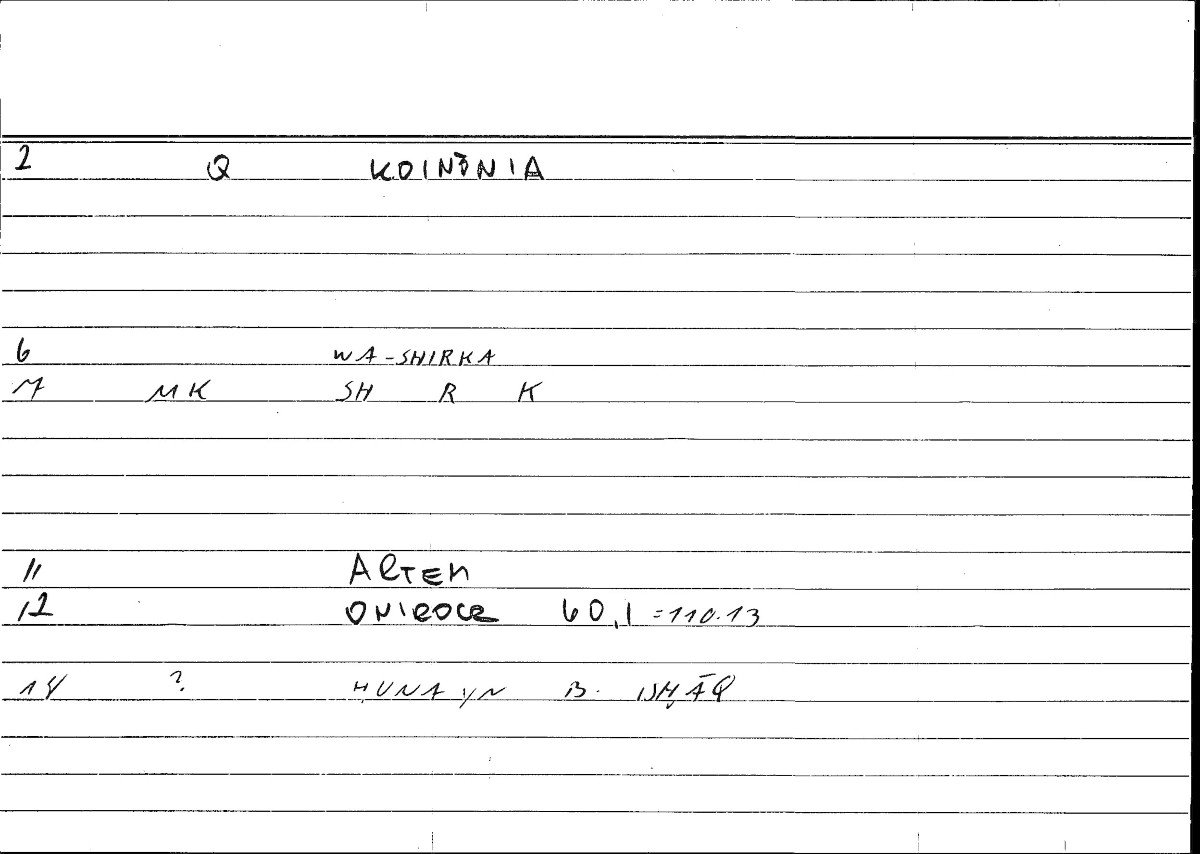 2 Q KOINŌNIA
6 WA-SHIRKA
7 MK SH R K
11 ARTEM
12 ONIROCR 60,1 =110.13
14 ? ḤUNAYN B. ISḤĀQ